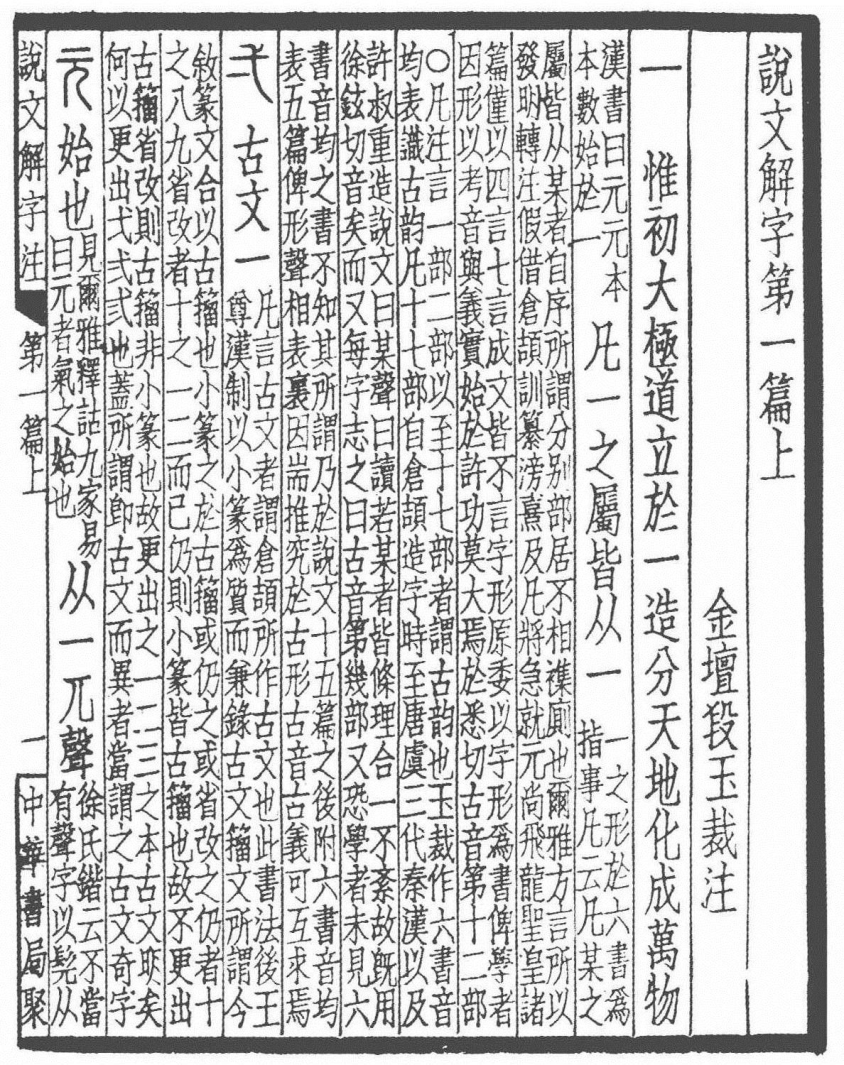 說文解字第一篇上
金壇段玉裁注
一 惟初大極道立於一造分天地化成萬物
漢書曰元元本
本數始於一
凡一之屬皆从一
一之形於六書爲
指事凡云凡某之
屬皆从某者自序所謂分别部居不相襍廁也爾雅方言所以
發明轉注假借倉頡訓纂滂熹及凡將急就元尚飛龍聖皇諸
篇僅以四言七言成文皆不言字形原委以字形爲書俾學者
因形以考音與義實始於許功莫大焉於悉切古音第十二部
〇凡注言一部二部以至十七部者謂古韵也玉裁作六書音
均表識古韵凡十七部自倉頡造字時至唐虞三代秦漢以及
許叔重造說文曰某聲曰讀若某者皆條理合一不紊故既用
徐鉉切音矣而又每字志之曰古音第幾部又恐學者未見六
書音均之書不知其所謂乃於說文十五篇之後附六書音均
表五篇俾形聲相表裏因耑推究於古形古音古義可互求焉
弌 古文一
凡言古文者謂倉頡所作古文也此書法後王
尊漢制以小篆爲質而兼錄古文籒文所謂今
敘篆文合以古籒也小篆之於古籒或仍之或省改之仍者十
之八九省改者十之一二而已仍則小篆皆古籒也故不更出
古籒省改則古籒非小篆也故更出之一二三之本古文明矣
何以更出弌弍弎也蓋所謂即古文而異者當謂之古文奇字
元 始也
見爾雅釋詁九家易
曰元者氣之始也
从一兀聲
徐氏鍇云不當
有聲字以髡从
說文解字注 第一篇上 一 中華書局聚